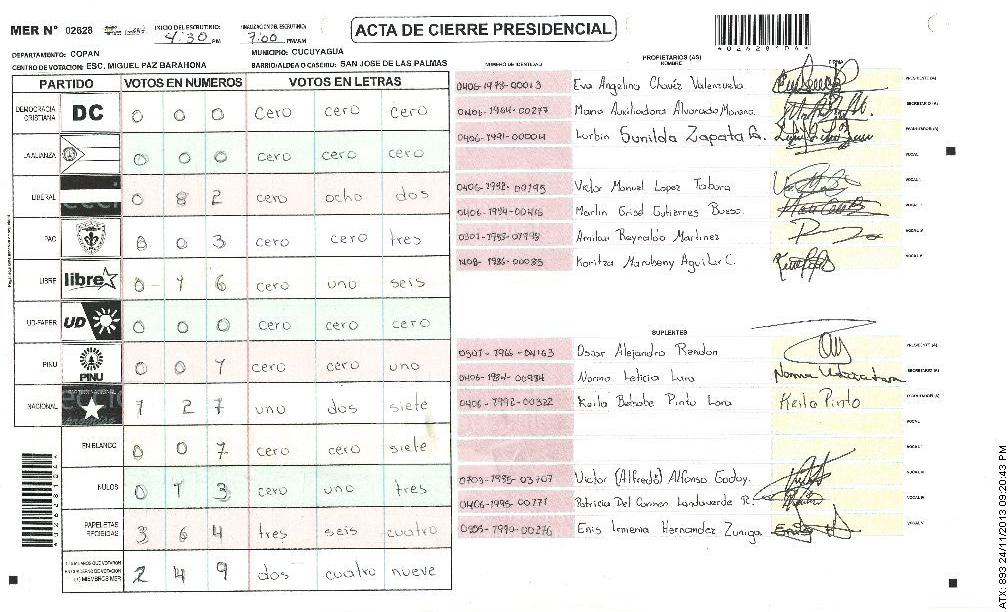 MER N° 02628
INICIO DEL ESCRUTINIO: 4:30 PM
FINALIZACION DEL ESCRUTINIO: 7:00 PM/AM
ACTA DE CIERRE PRESIDENCIAL
DEPARTAMENTO: COPAN
MUNICIPIO: CUCUYAGUA
CENTRO DE VOTACION: ESC. MIGUEL PAZ BARAHONA
BARRIO/ALDEA O CASERIO: SAN JOSE DE LAS PALMAS
PARTIDO VOTOS EN NUMEROS VOTOS EN LETRAS
DEMOCRACIA CRISTIANA DC 0 0 0 cero cero cero
LA ALIANZA 0 0 0 cero cero cero
LIBERAL 0 8 2 cero ocho dos
PAC 0 0 3 cero cero tres
LIBRE libre 0 1 6 cero uno seis
UD-FAPER UD 0 0 0 cero cero cero
PINU PINU 0 0 1 cero cero uno
NACIONAL 1 2 7 uno dos siete
EN BLANCO 0 0 7 cero cero siete
NULOS 0 1 3 cero uno tres
PAPELETAS RECIBIDAS 3 6 4 tres seis cuatro
MIEMBROS MER 2 4 9 dos cuatro nueve
NUMERO DE IDENTIDAD
PROPIETARIOS (AS)
NOMBRE
FIRMA
0406-1978-00013 Eva Angelina Chavéz Valenzuela PRESIDENTE (A)
0406-1964-00277 Maria Auxiliadora Alvarado Moreno SECRETARIO (A)
Lurbin Sunilda Zapata ESCRUTADOR (A)
VOCAL I
0406-1992-00195 Victor Manuel Lopez Tabora
0406-1994-00416 Marlin Grisel Gutierres Bueso.
Amilcar Reynaldo Martinez
1408-1986-00085 Karitza Marubeny Aguilar C.
SUPLENTES
0501-1966-04163 Oscar Alejandro Rendon PRESIDENTE (A)
0406-1984-00984 Norma Leticia Lara SECRETARIO (A)
0406-1992-00322 Keila Betsabe Pinto Lara Keila Pinto ESCRUTADOR (A)
VOCAL I
0703-1985-03707 Victor (Alfredo) Alfonso Godoy.
0406-1995-00771 Patricia Del Carmen Landaverde R.
0505-1990-00276 Enis Irmenia Hernandez Zuniga
ATX: 893 24/11/2013 09:20:43 PM